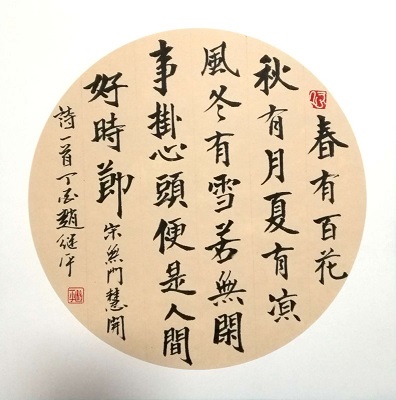 春有百花
秋有月夏有凉
風冬有雪若無閑
事掛心頭便是人間
好時節 宋無門慧開
詩一首丁酉趙继平